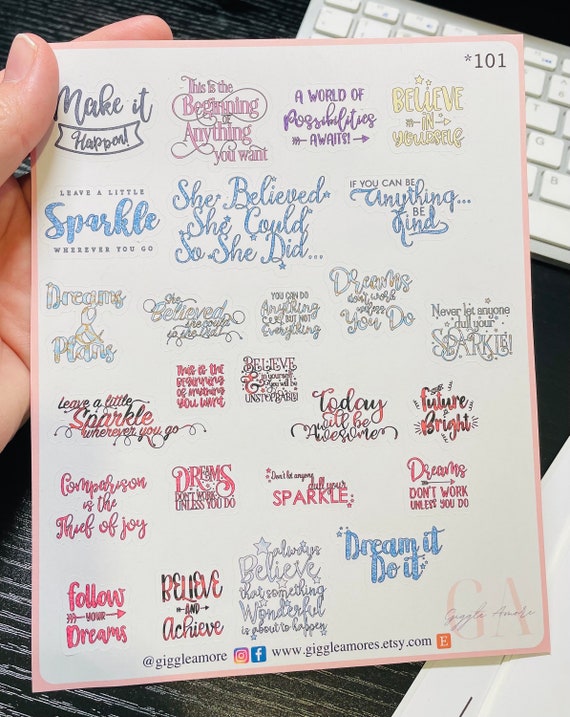 *101
Make it
Happen!
This is the
Beginning
OF
Anything
you want
A WORLD OF
Possibilities
AWAITS!
BELIEVE
IN
YOURSELF
LEAVE A LITTLE
Sparkle
WHEREVER YOU GO
She Believed
She Could
So She Did...
IF YOU CAN BE
Anything...
BE
Kind
Dreams
&
Plans
She
Believed
she could
so she did
YOU CAN DO
Anything
BUT NOT
Everything
Dreams
don't work
unless
You Do
Never let anyone
dull your
SPARKLE!
This is the
beginning
of anything
you want
BELIEVE
in yourself
& you will be
UNSTOPPABLE!
Leave a little
Sparkle
wherever you go
Today
will be
Awesome
Future
Bright
Comparison
is the
Thief of joy
DREAMS
DON'T WORK
UNLESS YOU DO
Don't let anyone
dull your
SPARKLE
Dreams
DON'T WORK
UNLESS YOU DO
Follow
YOUR
Dreams
BELIEVE
AND
Achieve
always
Believe
that something
Wonderful
is about to happen
Dream it
Do it
GA
Giggle Amore
@giggleamore f www.giggleamores.etsy.com E